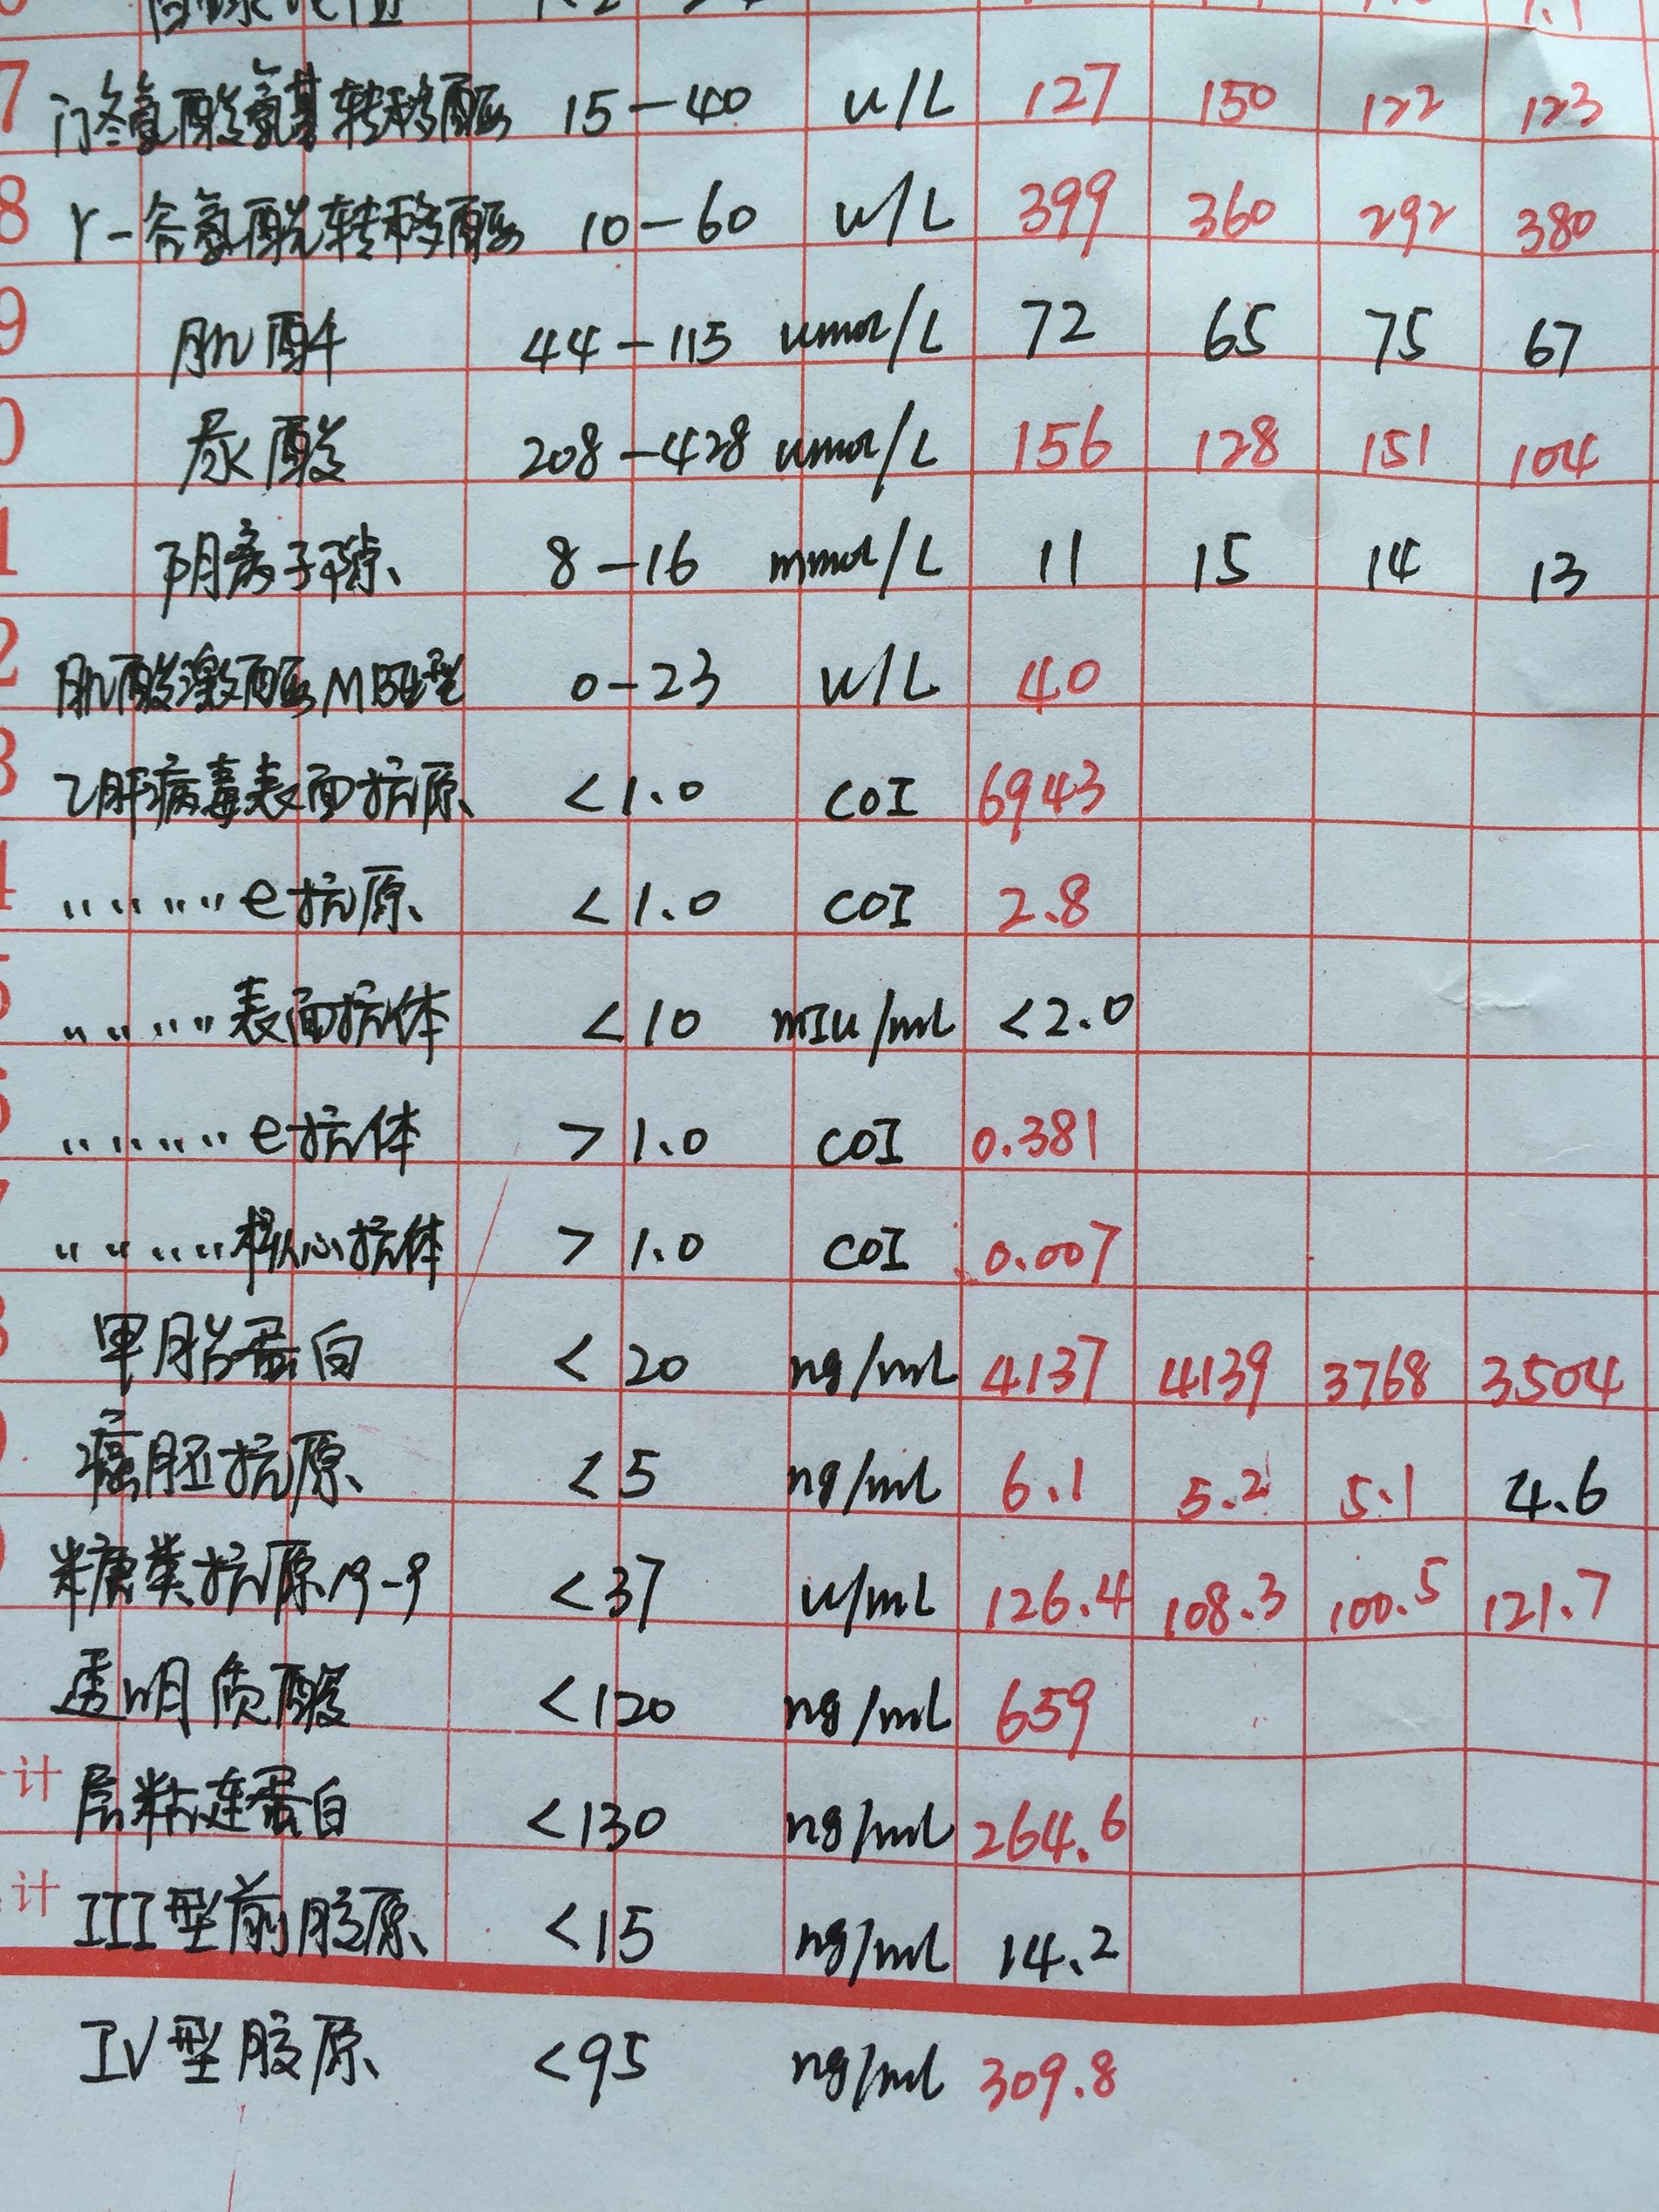 7 门冬氨酸氨基转移酶 15-40 u/L 127 150 122 123
8 γ-谷氨酰转移酶 10-60 u/L 399 360 292 380
9 肌酐 44-115 umol/L 72 65 75 67
0 尿酸 208-428 umol/L 156 128 151 104
1 阴离子隙 8-16 mmol/L 11 15 14 13
2 肌酸激酶MB 0-23 u/L 40
3 乙肝病毒表面抗原 <1.0 COI 6943
4 〃〃〃〃e抗原 <1.0 COI 2.8
〃〃〃〃表面抗体 <10 mIu/mL <2.0
〃〃〃〃e抗体 >1.0 COI 0.381
〃〃〃〃核心抗体 >1.0 COI 0.007
甲胎蛋白 <20 ng/mL 4137 4139 3768 3504
癌胚抗原 <5 ng/mL 6.1 5.2 5.1 4.6
糖类抗原19-9 <37 u/mL 126.4 108.3 100.5 121.7
透明质酸 <120 ng/mL 659
计 层粘连蛋白 <130 ng/mL 264.6
计 III型前胶原 <15 ng/mL 14.2
IV型胶原 <95 ng/ml 309.8